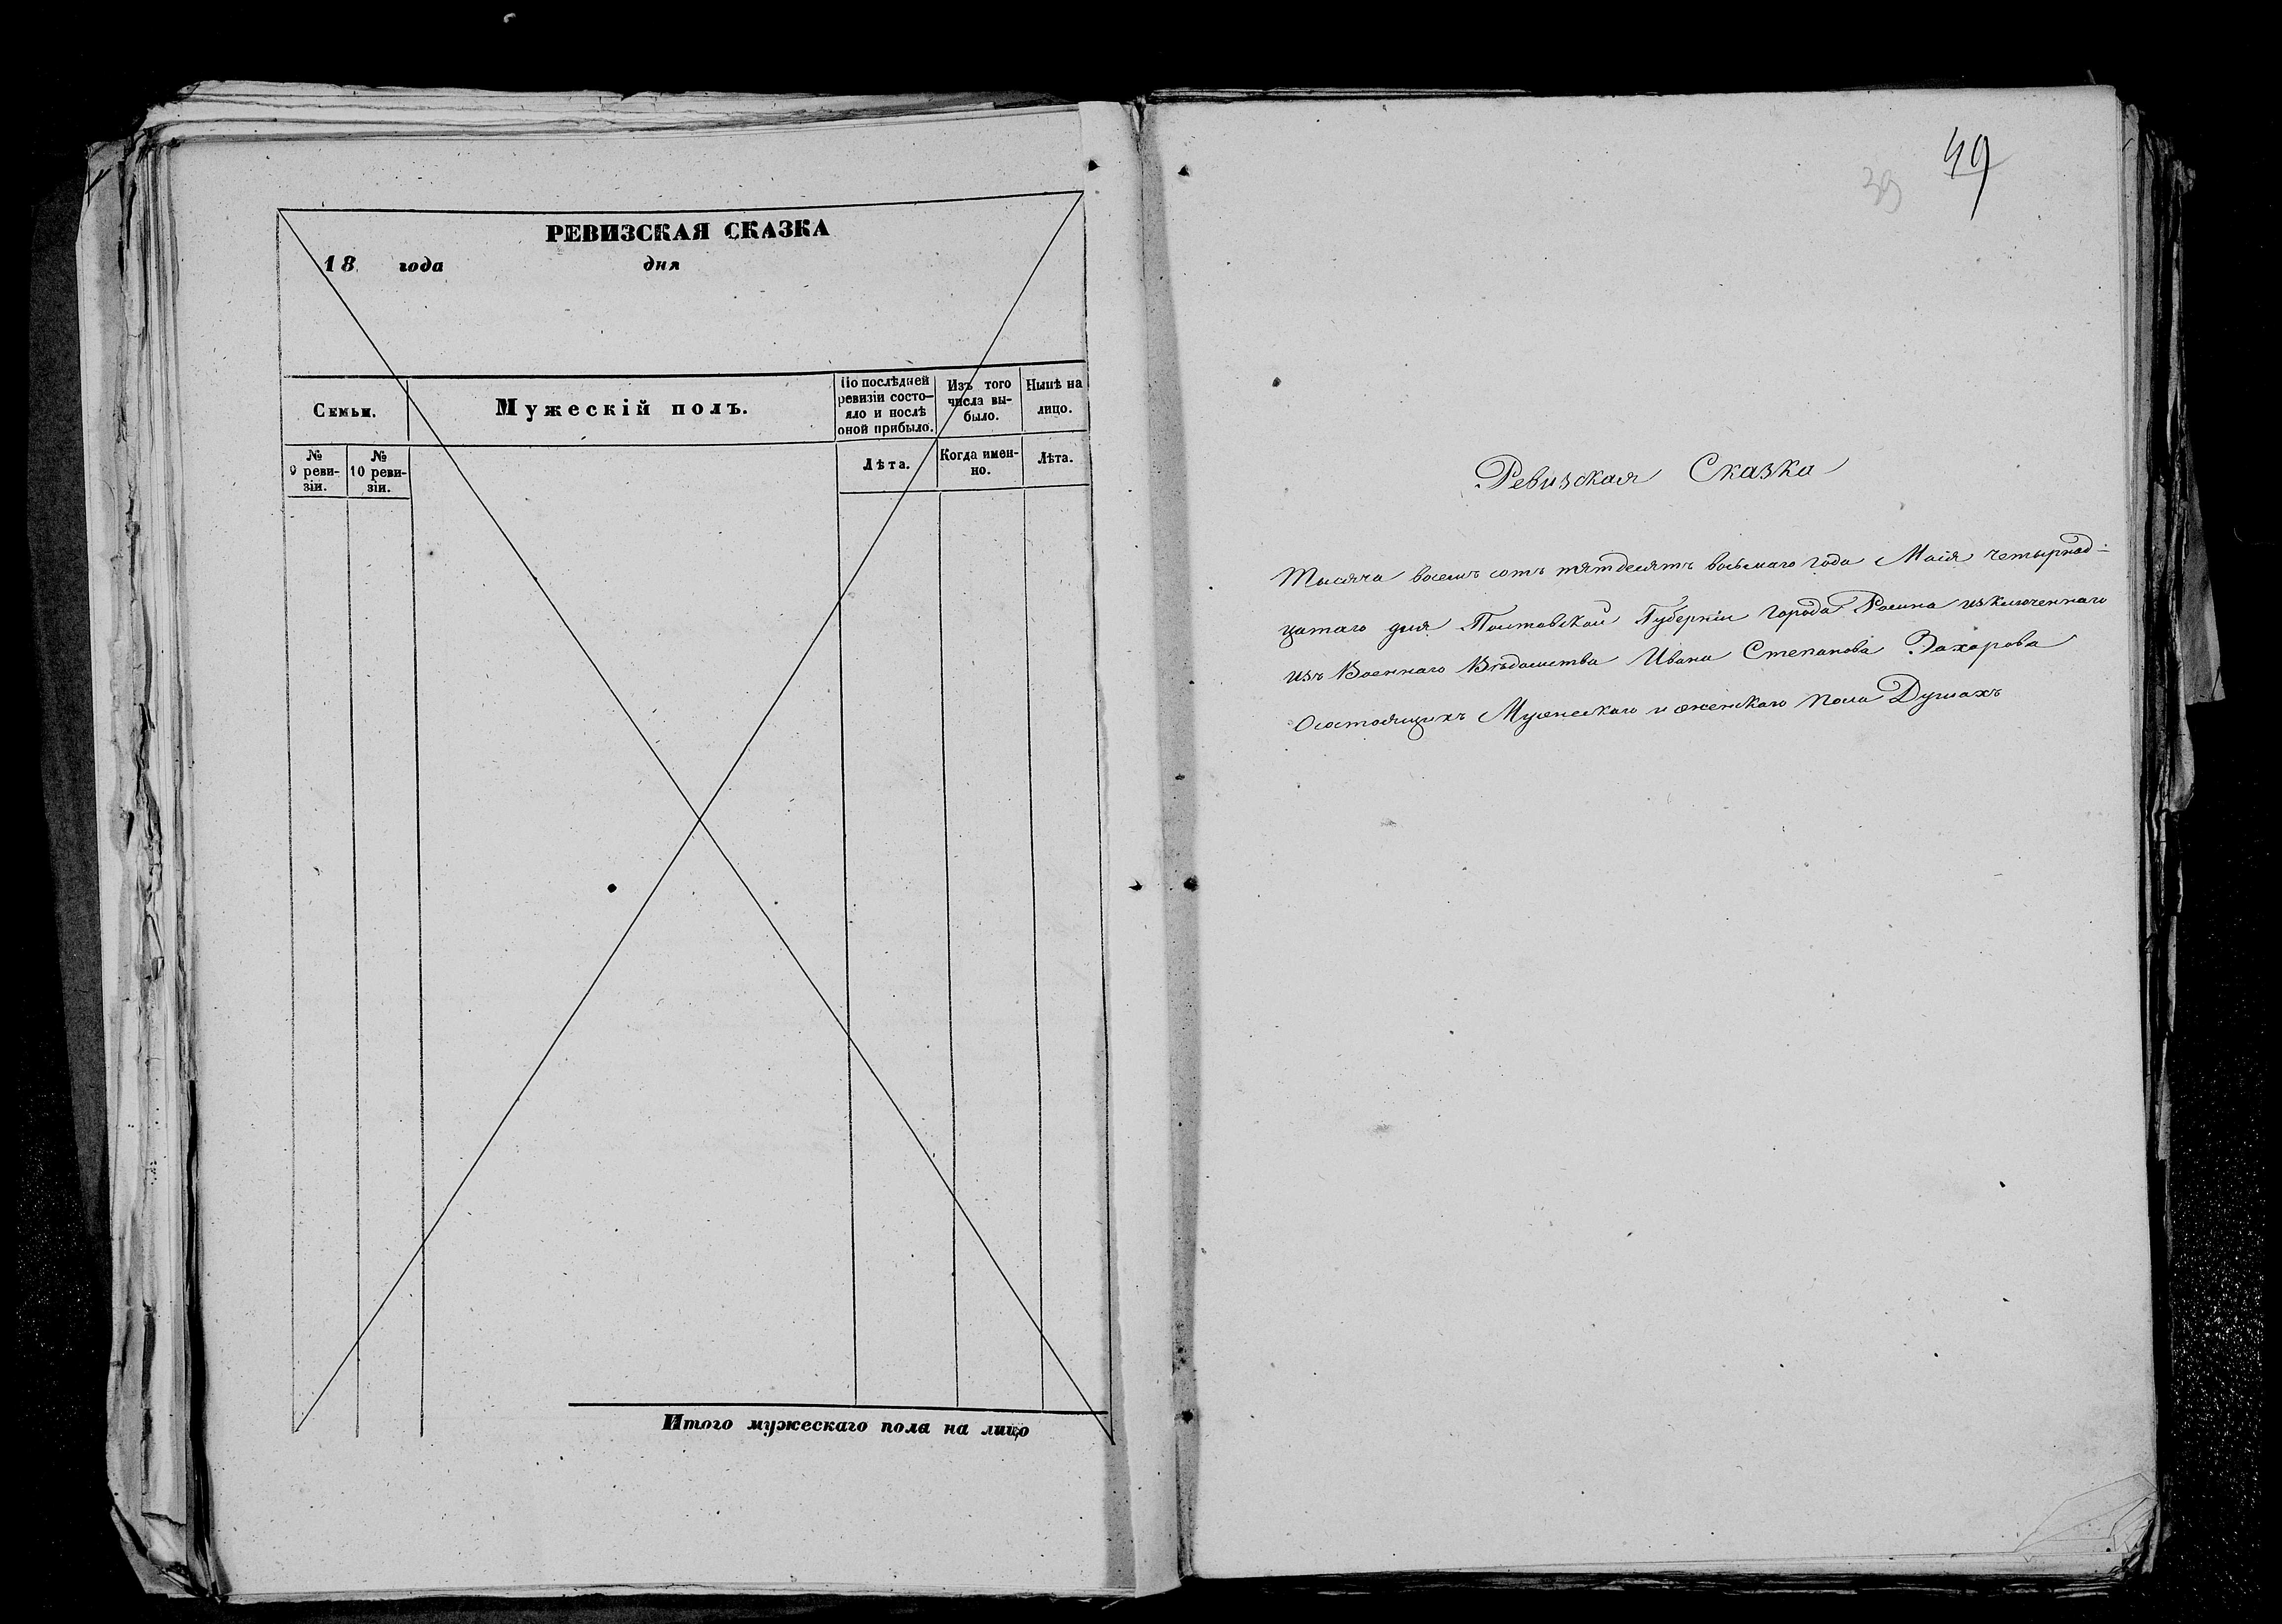 РЕВИЗСКАЯ СКАЗКА
18 года дня
Семьи.
Мужескій полъ.
По послѣдней
ревизіи состо-
яло и послѣ
оной прибыло.
Изъ того
числа вы-
было.
Нынѣ на
лицо.
№
9 реви-
зіи.
№
10 реви-
зіи.
Лѣта.
Когда имен-
но.
Лѣта.
Итого мужескаго пола на лицо
49
39
Ревизская Сказка
Тысяча восемь сотъ пятдесятъ восьмаго года Маія четырнад-
цатаго дня Полтавской Губерніи города Ромна изключеннаго
изъ Военнаго Вѣдомства Ивана Степанова Захарова
О состоящихъ Мужескаго и женскаго пола Душахъ